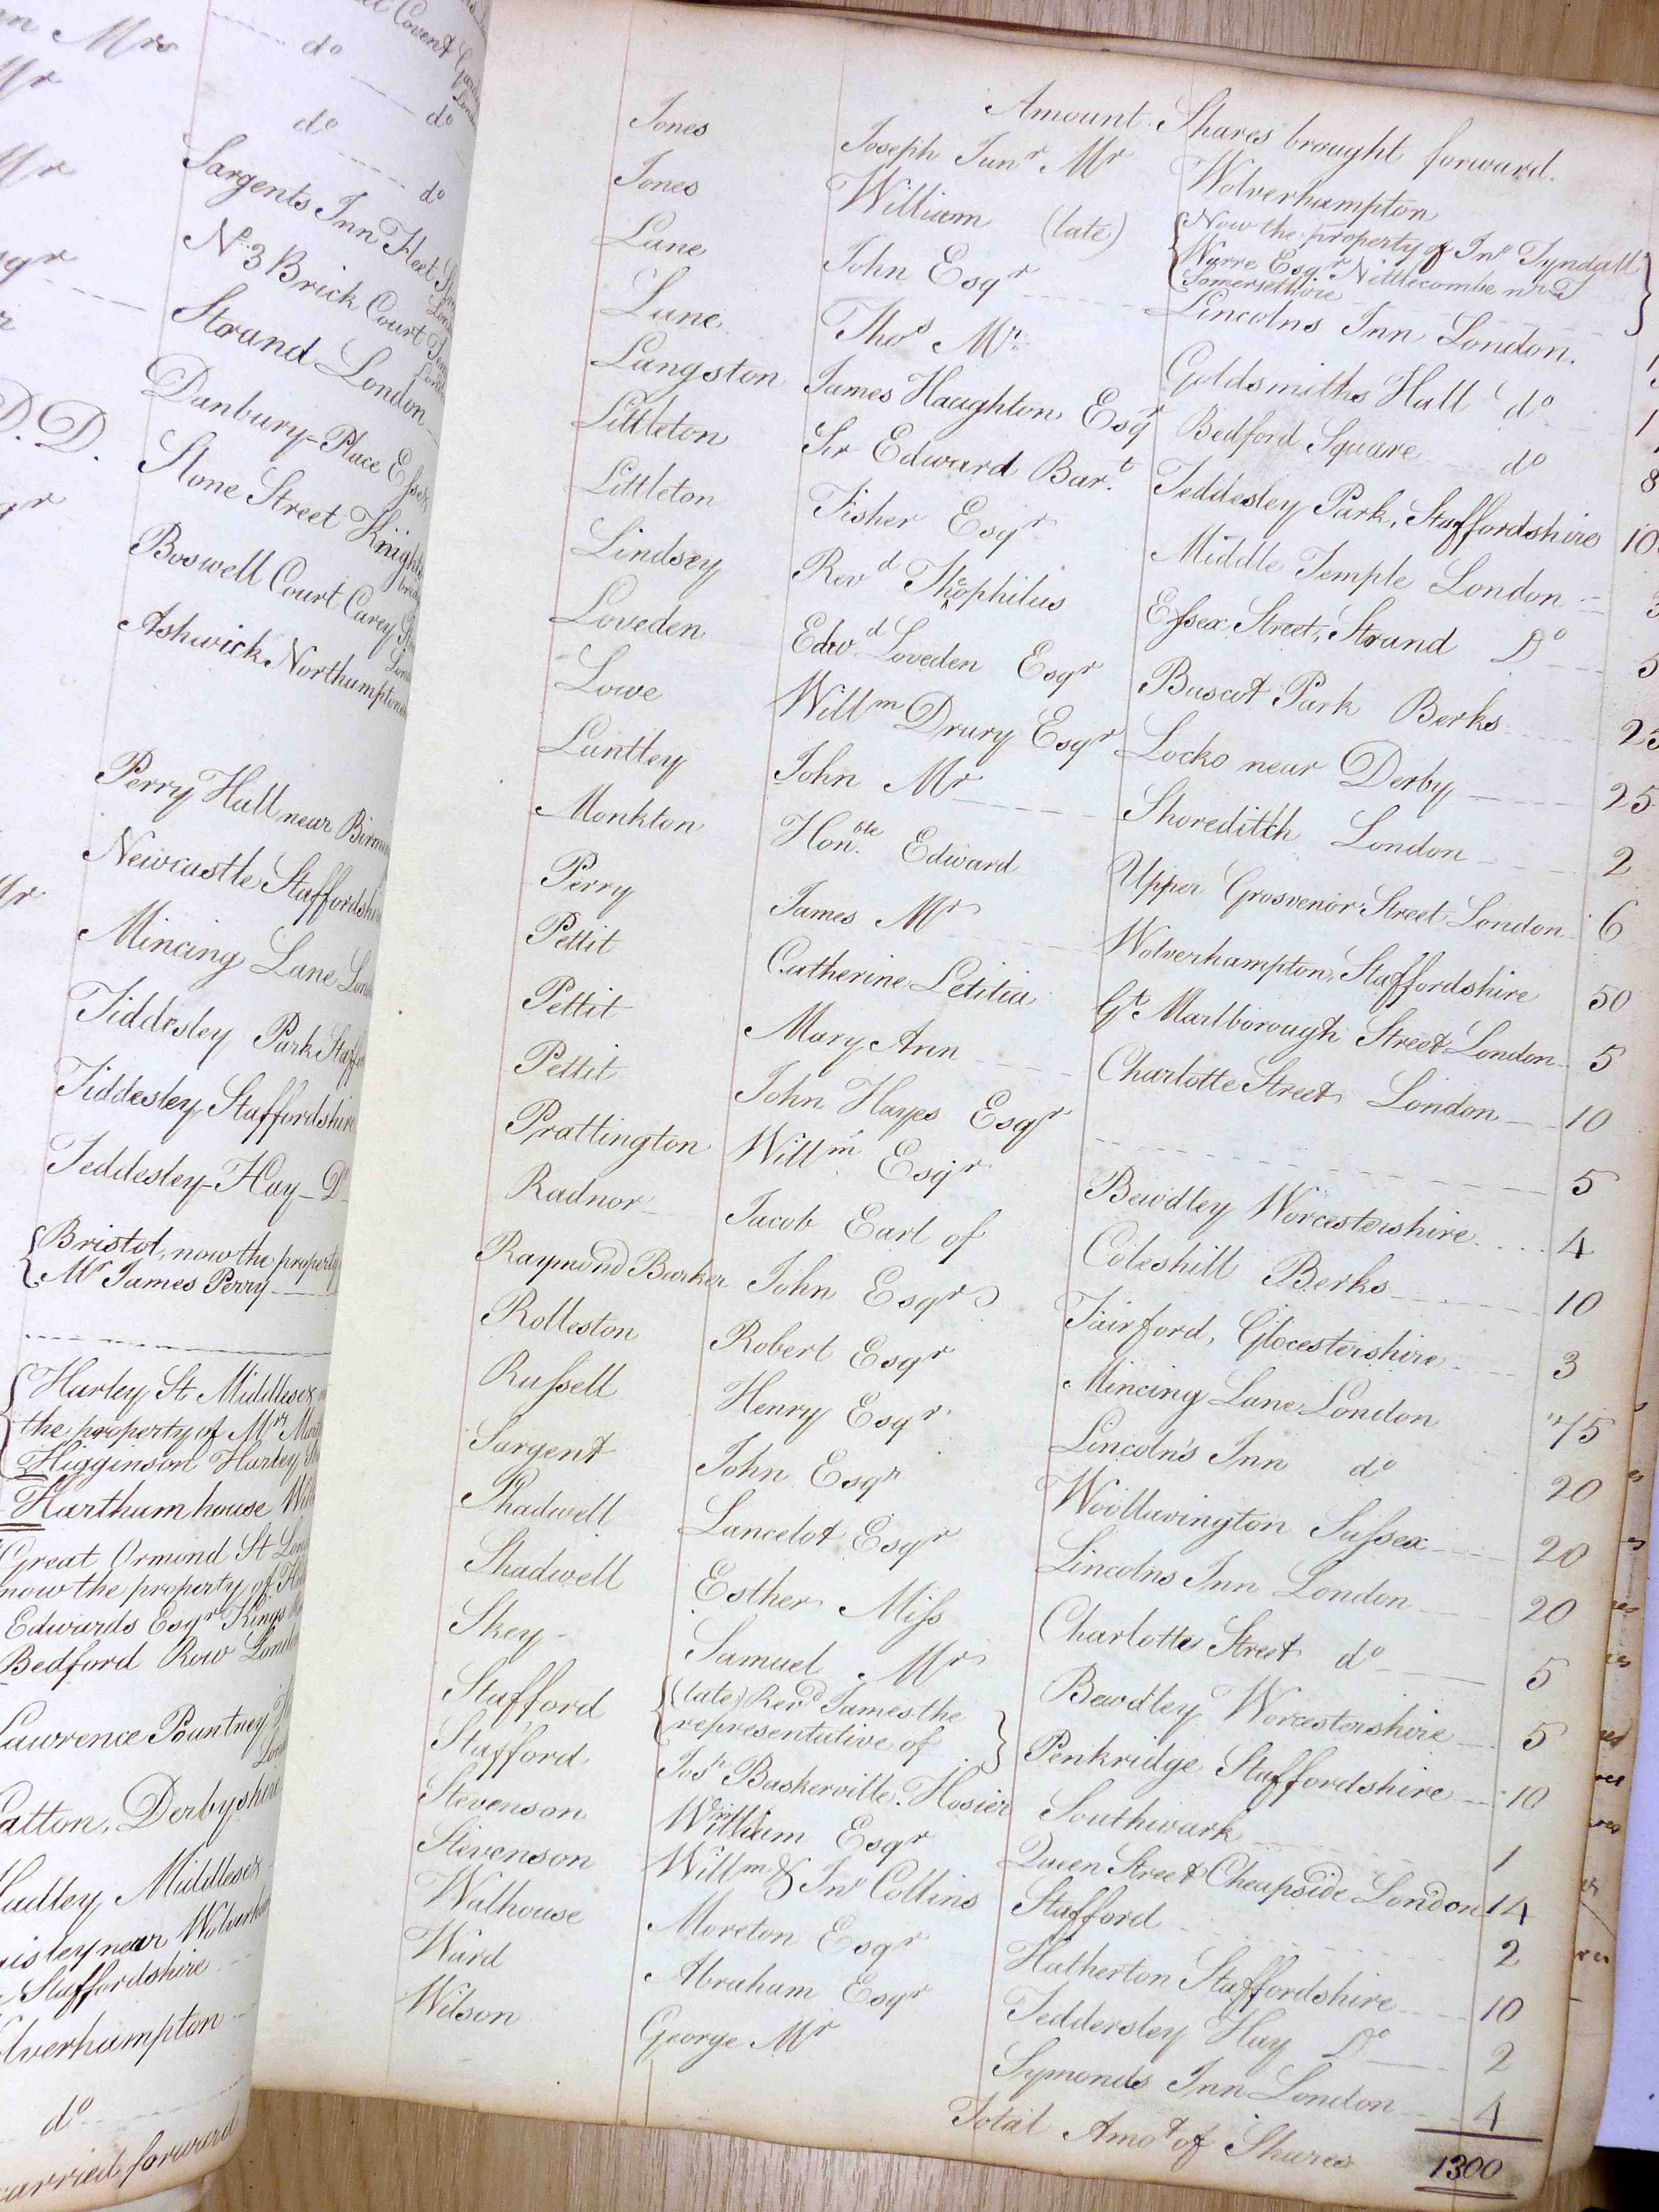 Mrs
do
Covent
Mr
do do
do
Mr
Sargents Inn Fleet
No. 3 Brick Court
Strand London
D.D. Danbury-Place Essex
Stone Street Knights
Boswell Court Carey
Ashwick Northampton
Perry Hall near Birm
Newcastle Staffordshi
Mincing Lane Lon
Tiddesley Park Staf
Tiddesley Staffordshire
Teddesley-Hay-Do
Bristol, now the property
Mr James Perry
Harley St Middlesex
the property of Mr
Higginson Harley
Hartham house Wil
Great Ormond St Lon
now the property of
Edwards Esqr Kings
Bedford Row London
Lawrence Pountney
Derbyshire
Middlesex
near Wolverh
Staffordshire
lverhampton
do
carried forward
Amount Shares brought forward.
Jones Joseph Junr Mr Wolverhampton
Jones William (late) Now the property of Jno Tyndall
Warre Esqr Nettlecombe nr
Somersetshire
Lane John Esqr Lincolns Inn London.
Lane Thos Mr Goldsmiths Hall do
Langston James Haughton Esqr Bedford Square do 8
Littleton Sir Edward Bart. Teddesley Park, Staffordshire 10
Littleton Fisher Esqr Middle Temple London
Lindsey Revd Theophilus Essex Street, Strand Do 5
Loveden Edwd Loveden Esqr Buscot Park Berks 25
Lowe Willm Drury Esqr Locko near Derby 25
Luntley John Mr Shoreditch London 2
Monkton Honble Edward Upper Grosvenor Street London 6
Perry James Mr Wolverhampton, Staffordshire 50
Pettit Catherine Letitia Gt Marlborough Street London 5
Pettit Mary Ann Charlotte Street London 10
Pettit John Hayes Esqr 5
Prattington Willm Esqr Bewdley Worcestershire 4
Radnor Jacob Earl of Coleshill Berks 10
Raymond Barker John Esqr Fairford, Glocestershire 3
Rolleston Robert Esqr Mincing Lane London 75
Russell Henry Esqr Lincoln's Inn do 20
Sargent John Esqr Woollavington Sussex 20
Shadwell Lancelot Esqr Lincolns Inn London 20
Shadwell Esther Miss Charlotte Street do 5
Skey Samuel Mr Bewdley Worcestershire 5
Stafford (late) Revd James the
representative of Penkridge Staffordshire 10
Stafford Josh Baskerville Hosier Southwark 1
Stevenson William Esqr Queen Street Cheapside London 14
Stevenson Willm & Jno Collins Stafford 2
Walhouse Moreton Esqr Hatherton Staffordshire 10
Ward Abraham Esqr Teddersley Hay Do 2
Wilson George Mr Symonds Inn London 4
Total Amot of Shares 1300